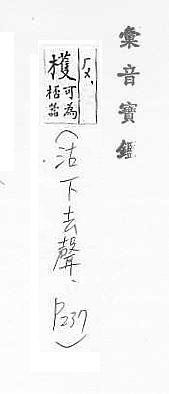 彙音寶鑑
ㄏㄨˋ
檴
可為
桮器
(沽下去聲、P237)